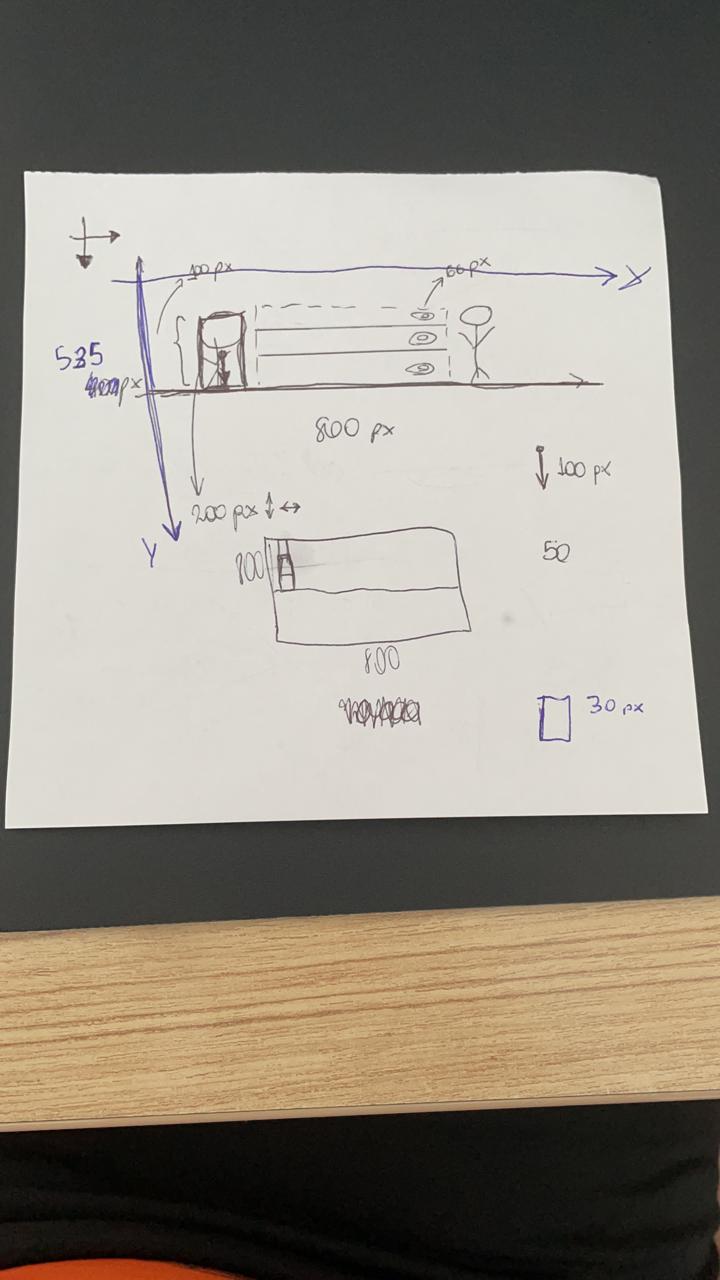 100 px
66 px
X
535
px
800 px
100 px
200 px
Y
50
800
800
30 px